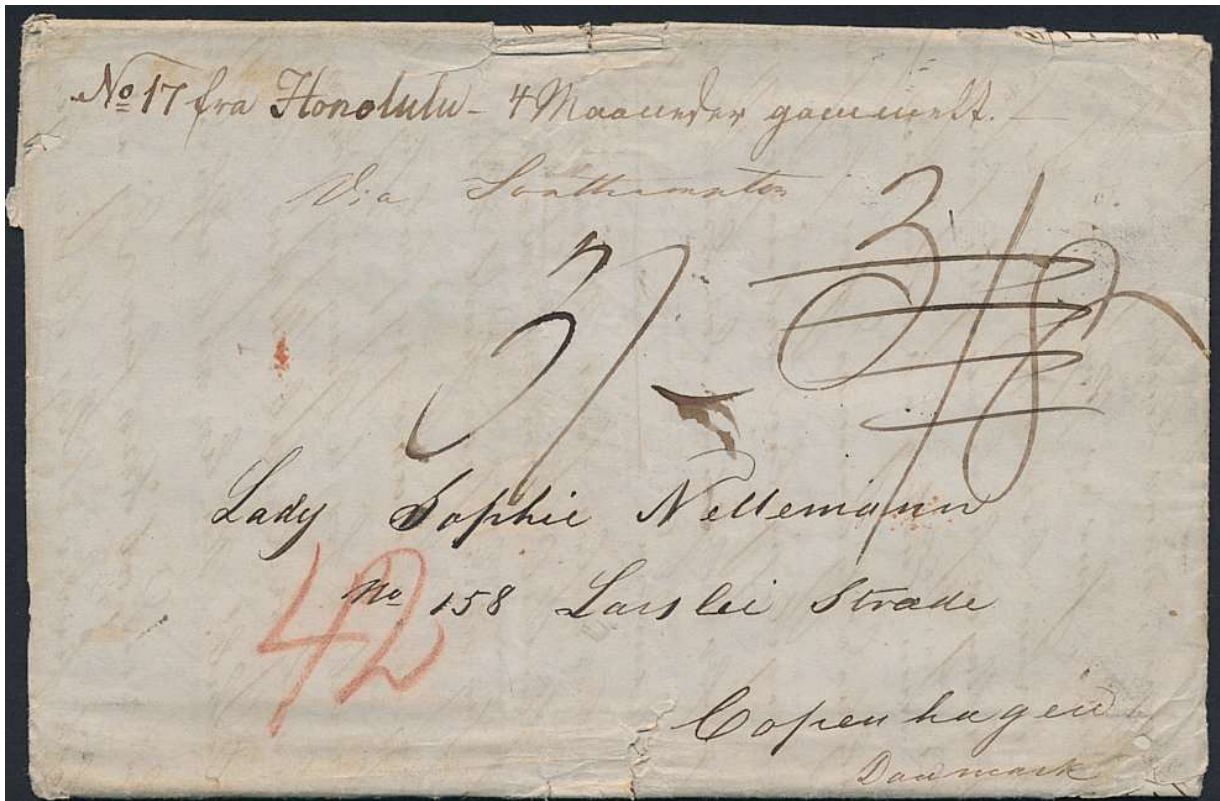 No 17 fra Honolulu - 4 Maaneder gammelt.
Via Southampton
3/-
3/8
Lady Sophie Nellemann
No 158 Larslei Stræde
42
Copenhagen
Danmark